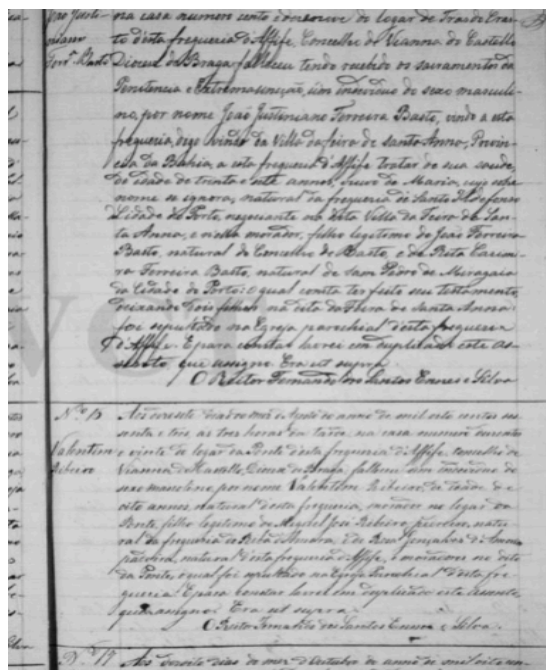 João Justi-
niano
Ferrª Basto
na casa numero cento e dezenove do logar de
to d'esta freguezia d'Affife, Concelho de Vianna do Castello
Diocese de Braga falleceu tendo recebido os sacramentos da
Penitencia e Extremaunção, um individuo do sexo masculi-
no, por nome João Justiniano Ferreira Basto, vindo a esta
freguezia, digo vindo da Villa da feira de Santa Anna, Provin-
cia da Bahia, a esta freguezia d'Affife tratar de sua saude,
de idade de trinta e sete annos, de Maria, cujo sobre
nome se ignora, natural da freguezia de Santo Ildefonso
Cidade do Porto, negociante na dita Villa da Feira de San-
ta Anna, e n'ella morador, filho legitimo de João Ferreira
Basto, natural do Concelho de Basto, e de Rita Casimi-
ra Ferreira Basto, natural de Sam Pedro de Miragaia
da Cidade do Porto: o qual consta ter feito seu testamento,
deixando dois filhos, na dita da Feira de Santa Anna
foi sepultado na Egreja parochial d'esta freguezia
d'Affife. E para constar lavrei em duplicado este as-
sento que assigno. Era ut supra
O Reitor Fernando dos Santos e Silva
Nº 18
Valentim
Ribeiro
Aos dias do mez de do anno de mil oito centos ses-
senta e tres, as tres horas da tarde, na casa numero duzentos
e vinte do logar da Ponte d'esta freguezia d'Affife, concelho de
Vianna do Castello, Diocese de Braga, falleceu um individuo do
sexo masculino por nome Valentim Ribeiro, de idade de
oito annos, natural d'esta freguezia, morador no logar da
Ponte, filho legitimo de Miguel José Ribeiro, natu-
ral da freguezia de e de Rosa Gonçalves
natural d'esta freguezia d'Affife, e moradores no dito
da Ponte, o qual foi sepultado na Egreja Parochial d'esta fre-
guezia. E para constar lavrei em duplicado este assento
que assigno. Era ut supra.
O Reitor Fernando dos Santos e Silva.
Nº 19
Aos dias do mez d'Outubro do anno de mil oito cen-